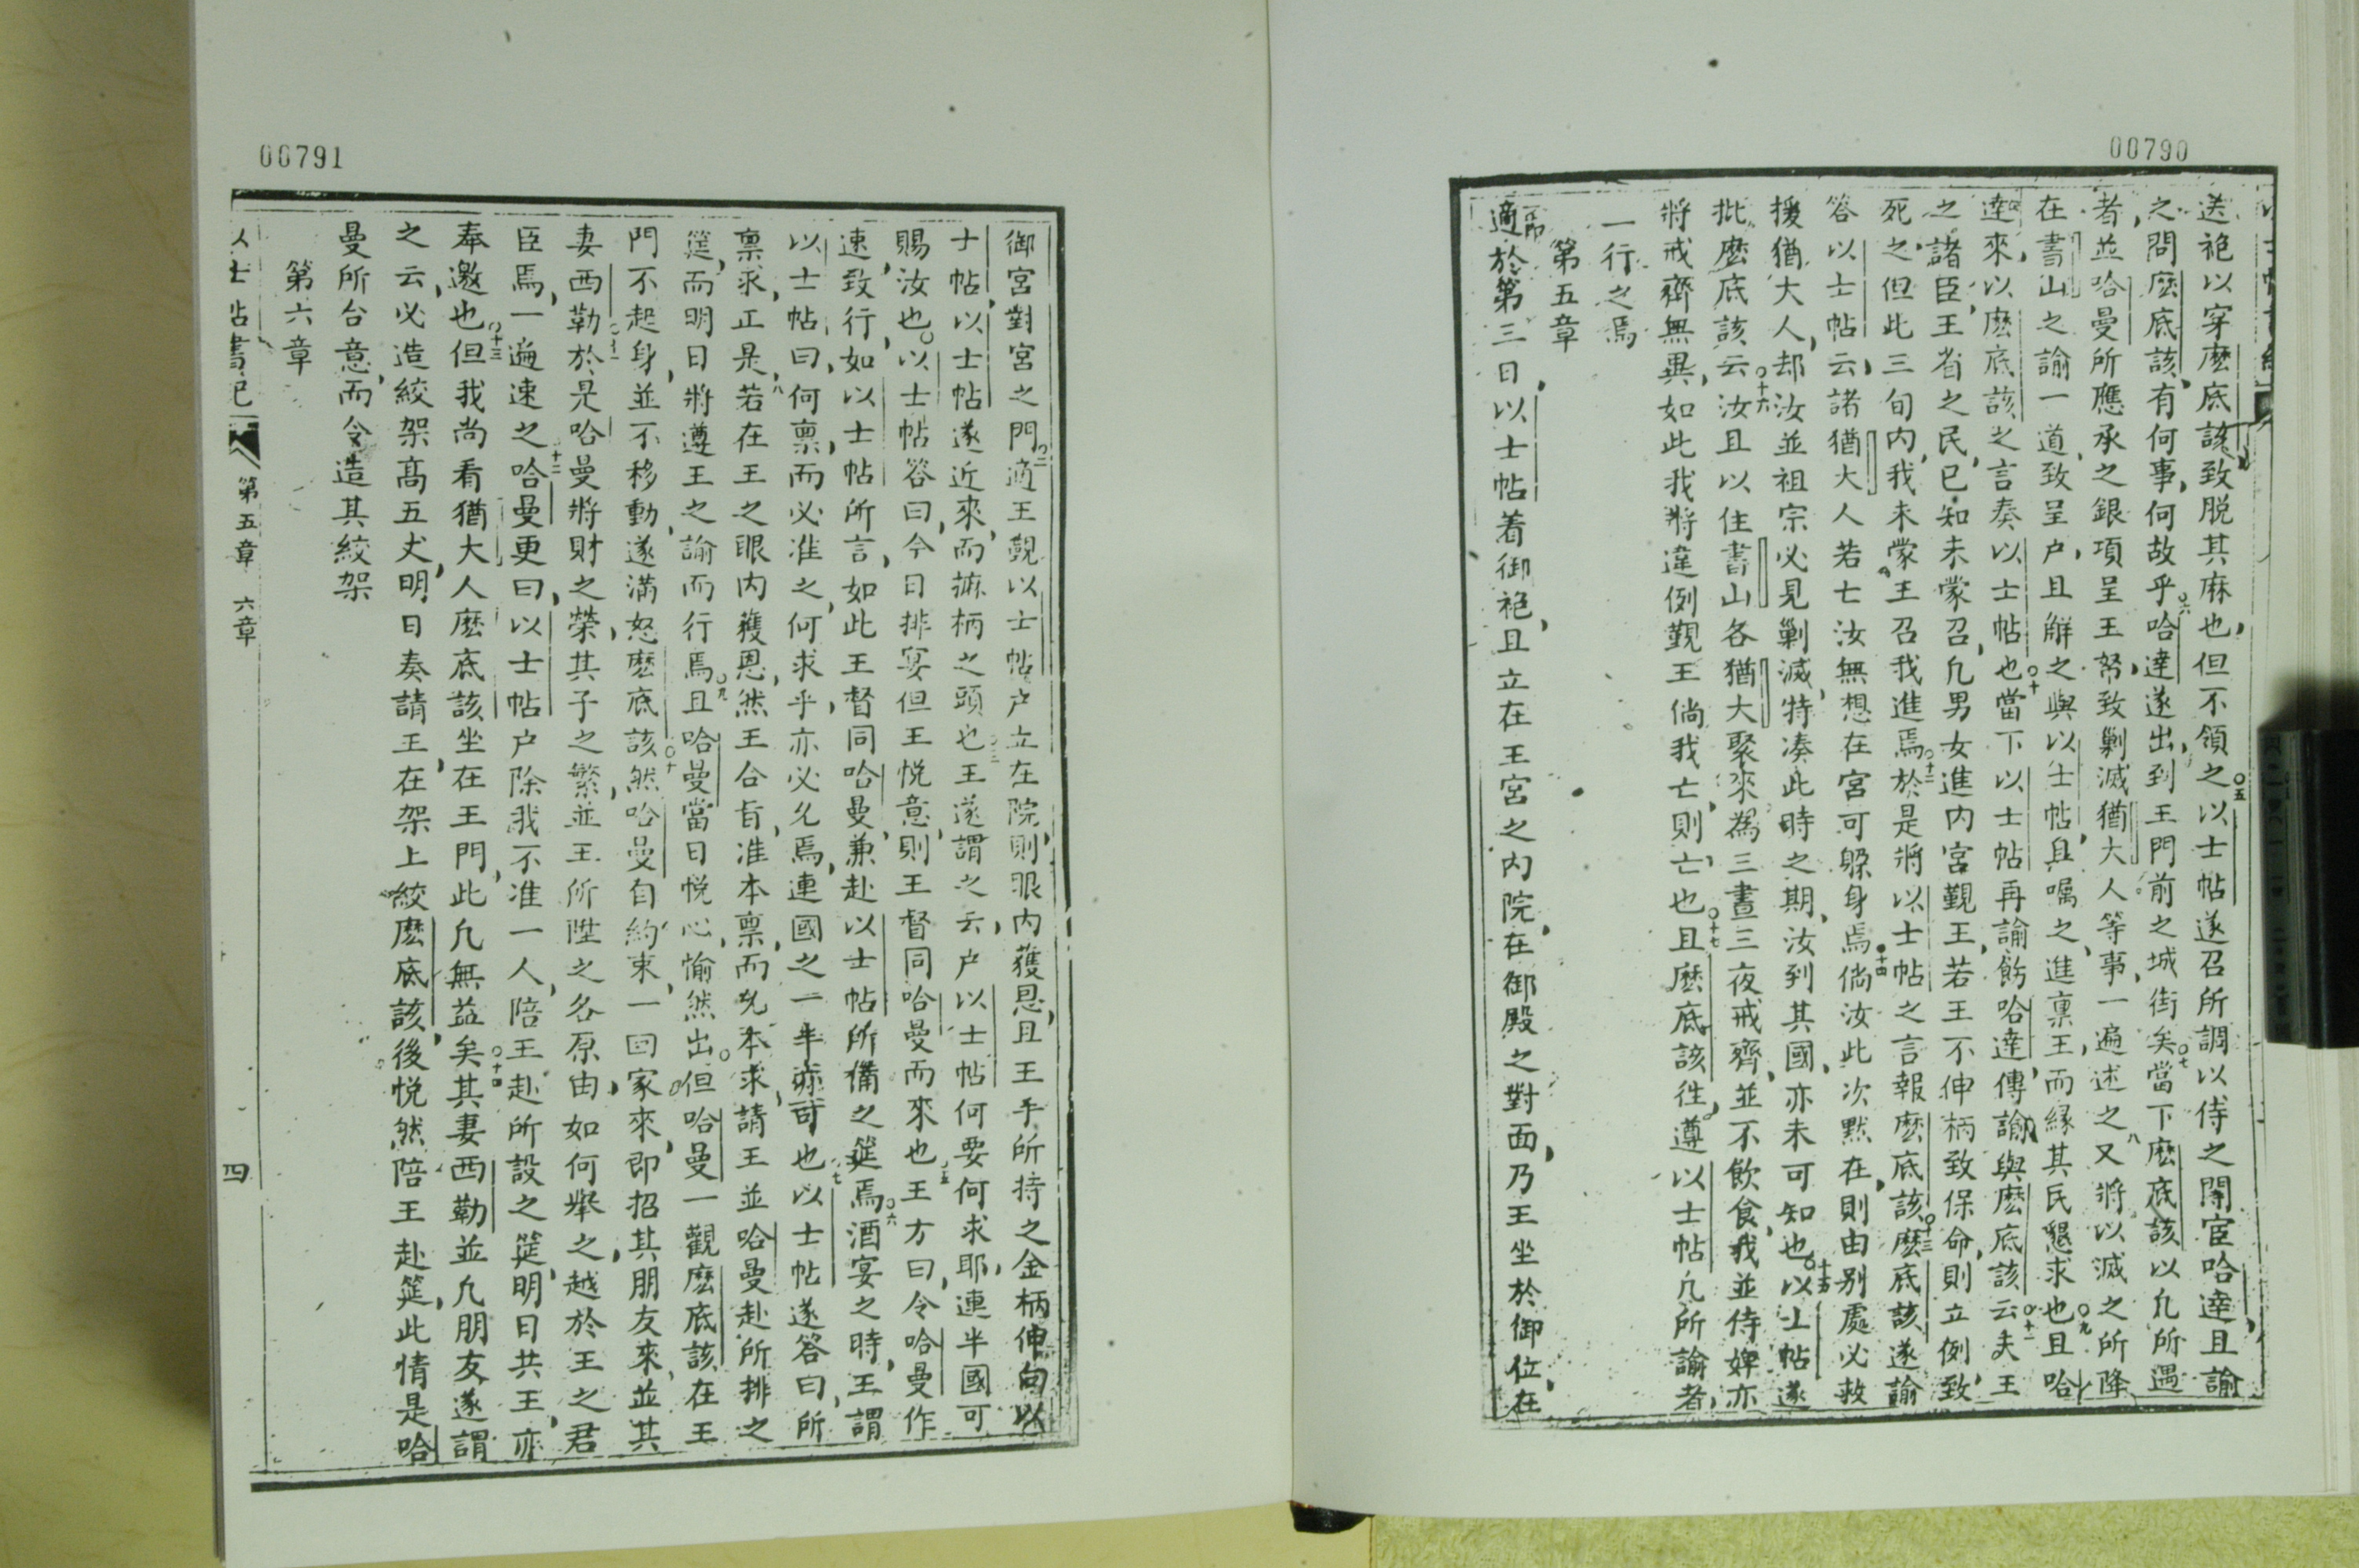 00790
送袍以穿麼底該致脱其麻也但不領之○五以士帖遂召所調以侍之閹宦哈達且諭
之問麼底該有何事何故乎○六哈達遂出到王門前之城街矣○七當下麼底該以凢所遇
者並哈曼所應承之銀項呈王帑致剿滅猶大人等事一遍述之八又將以滅之所降
在書山之諭一道致呈户且觧之與以士帖且囑之進稟王而縁其民懇求也○九且哈
達來以麼底該之言奏以士帖也○十當下以士帖再諭飭哈達傳諭與麼底該云○十一夫王
之諸臣王省之民已知未蒙召凢男女進内宮覲王若王不伸柄致保命則立例致
死之但此三旬内我未蒙王召我進焉○十二於是將以士帖之言報麼底該○十三麼底該遂諭
答以士帖云諸猶大人若七汝無想在宮可躱身焉十四倘汝此次黙在則由别處必救
援猶大人却汝並祖宗必見剿滅特凑此時之期汝到其國亦未可知也○十五以士帖遂
批麼底該云○十六汝且以住書山各猶大聚來為三晝三夜戒齊並不飲食我並侍婢亦
將戒齊無異如此我將違例覲王倘我亡則亡也○十七且麼底該徃遵以士帖凢所諭者
一行之焉
第五章
適於第三日以士帖着御袍且立在王宮之内院在御殿之對面乃王坐於御位在
00791
御宮對宮之門○二適王覲以士帖户立在院則眼内獲恩且王手所持之金柄伸向以
士帖以士帖遂近來而㨪柄之頭也○三王遂謂之云户以士帖何要何求耶連半國可
賜汝也○以士帖答曰今日排宴但王悦意則王督同哈曼而來也○五王方曰令哈曼作
速致行如以士帖所言如此王督同哈曼兼赴以士帖所備之筵焉○六酒宴之時王謂
以士帖曰何稟而必准之何求乎亦必允焉連國之一半亦可也○七以士帖遂答曰所
稟求正是八若在王之眼内獲恩然王合旨准本稟而允本求請王並哈曼赴所排之
筵而明日將遵王之諭而行焉○九且哈曼當日悦心愉然出○但哈曼一觀麼底該在王
門不起身並不移動遂滿怒麼底該○十然哈曼自約束一囬家來即招其朋友來並其
妻西勒○十一於是哈曼將財之榮其子之繁並王所陞之各原由如何舉之越於王之君
臣焉一遍速之○十二哈曼更曰以士帖户除我不准一人陪王赴所設之筵明日共王亦
奉邀也○十三但我尚看猶大人麼底該坐在王門此凢無益矣○十四其妻西勒並凢朋友遂謂
之云必造絞架髙五丈明日奏請王在架上絞麼底該後悦然陪王赴筵此情是哈
曼所合意而令造其絞架
第六章
以士帖書記 第五章 六章 四